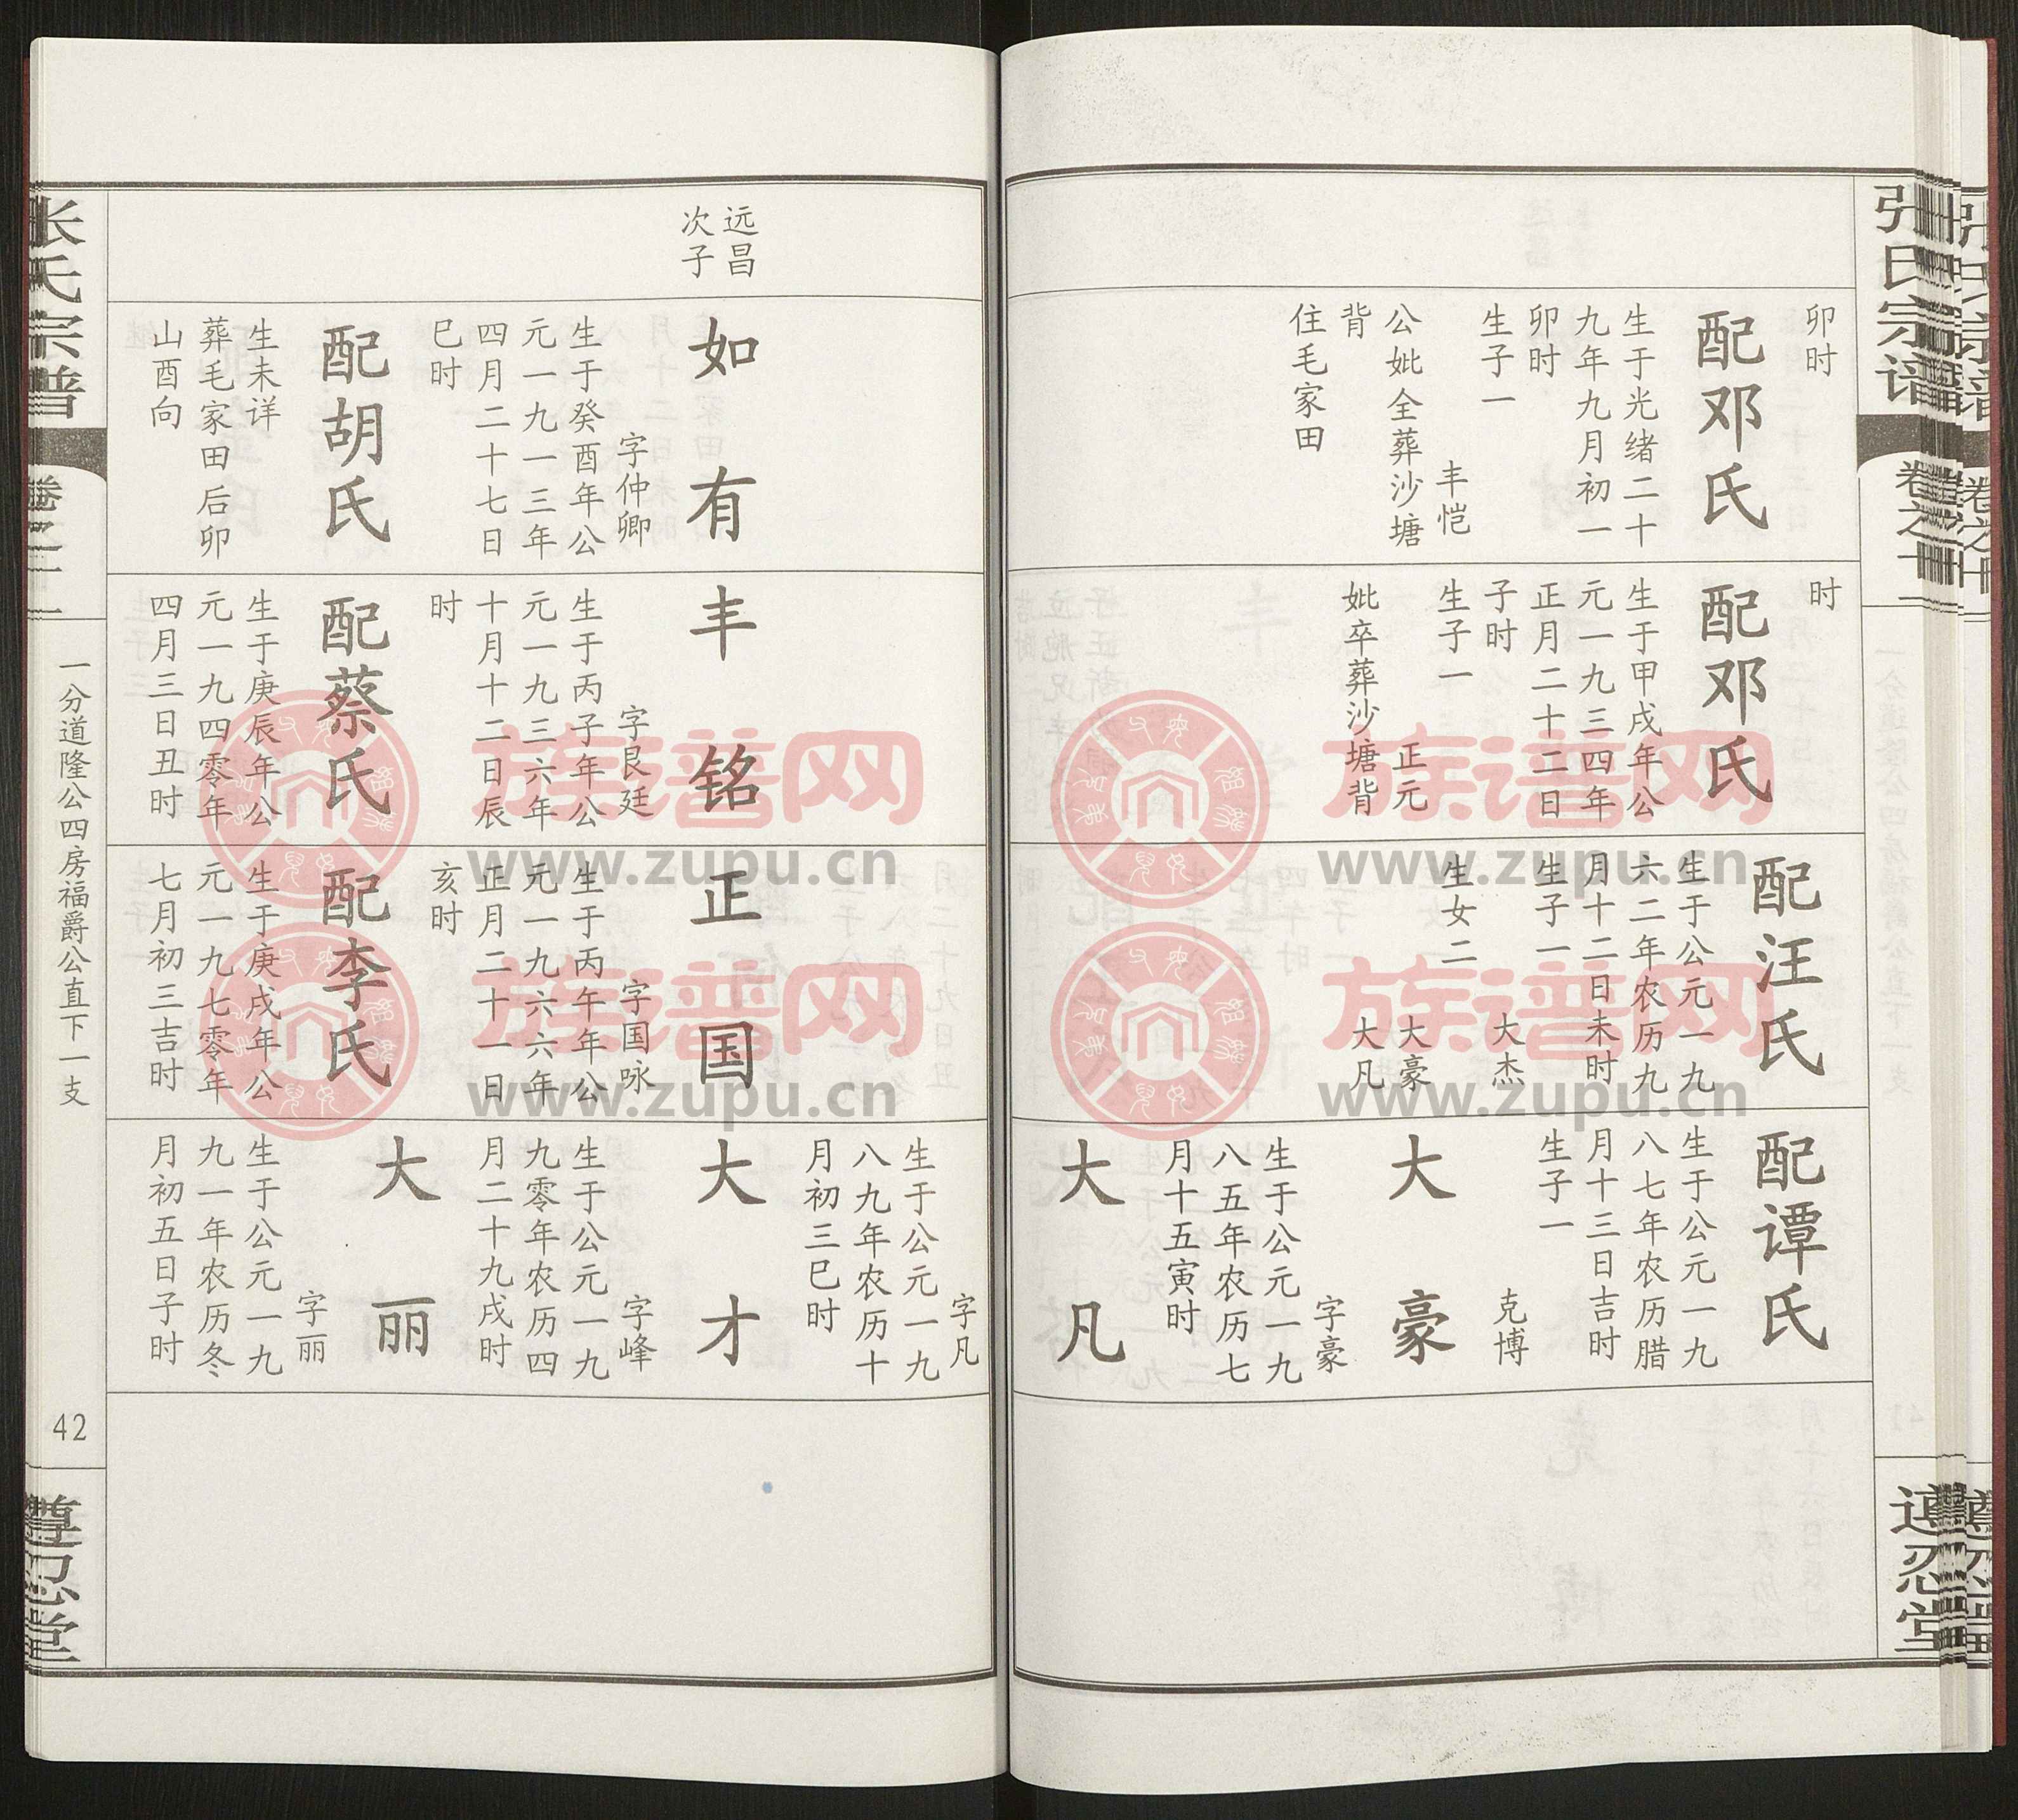 张氏宗谱
卷之十
遵忍堂
卯时
配邓氏
生于光绪二十
九年九月初一
卯时
生子一
丰恺
公妣全葬沙塘
背
住毛家田
时
配邓氏
生于甲戌年公
元一九三四年
正月二十二日
子时
生子一
正元
妣卒葬沙塘背
配汪氏
生于公元一九
六二年农历九
月十二日未时
生子一
大杰
生女二
大豪
大凡
配谭氏
生于公元一九
八七年农历腊
月十三日吉时
生子一
克博
大豪
字豪
生于公元一九
八五年农历七
月十五寅时
大凡
字凡
生于公元一九
八九年农历十
月初三巳时
远昌
次子
如有
字仲卿
生于癸酉年公
元一九一三年
四月二十七日
巳时
配胡氏
生未详
葬毛家田后卯
山酉向
丰铭
字艮廷
生于丙子年公
元一九三六年
十月十二日辰
时
配蔡氏
生于庚辰年公
元一九四零年
四月三日丑时
正国
字国咏
生于丙午年公
元一九六六年
正月二十一日
亥时
配李氏
生于庚戌年公
元一九七零年
七月初三吉时
大才
字峰
生于公元一九
九零年农历四
月二十九戌时
大丽
字丽
生于公元一九
九一年农历冬
月初五日子时
张氏宗谱
卷之
一分道隆公四房福爵公直下一支
42
遵忍堂
族谱网
www.zupu.cn
族谱网
www.zupu.cn
族谱网
www.zupu.cn
族谱网
www.zupu.cn